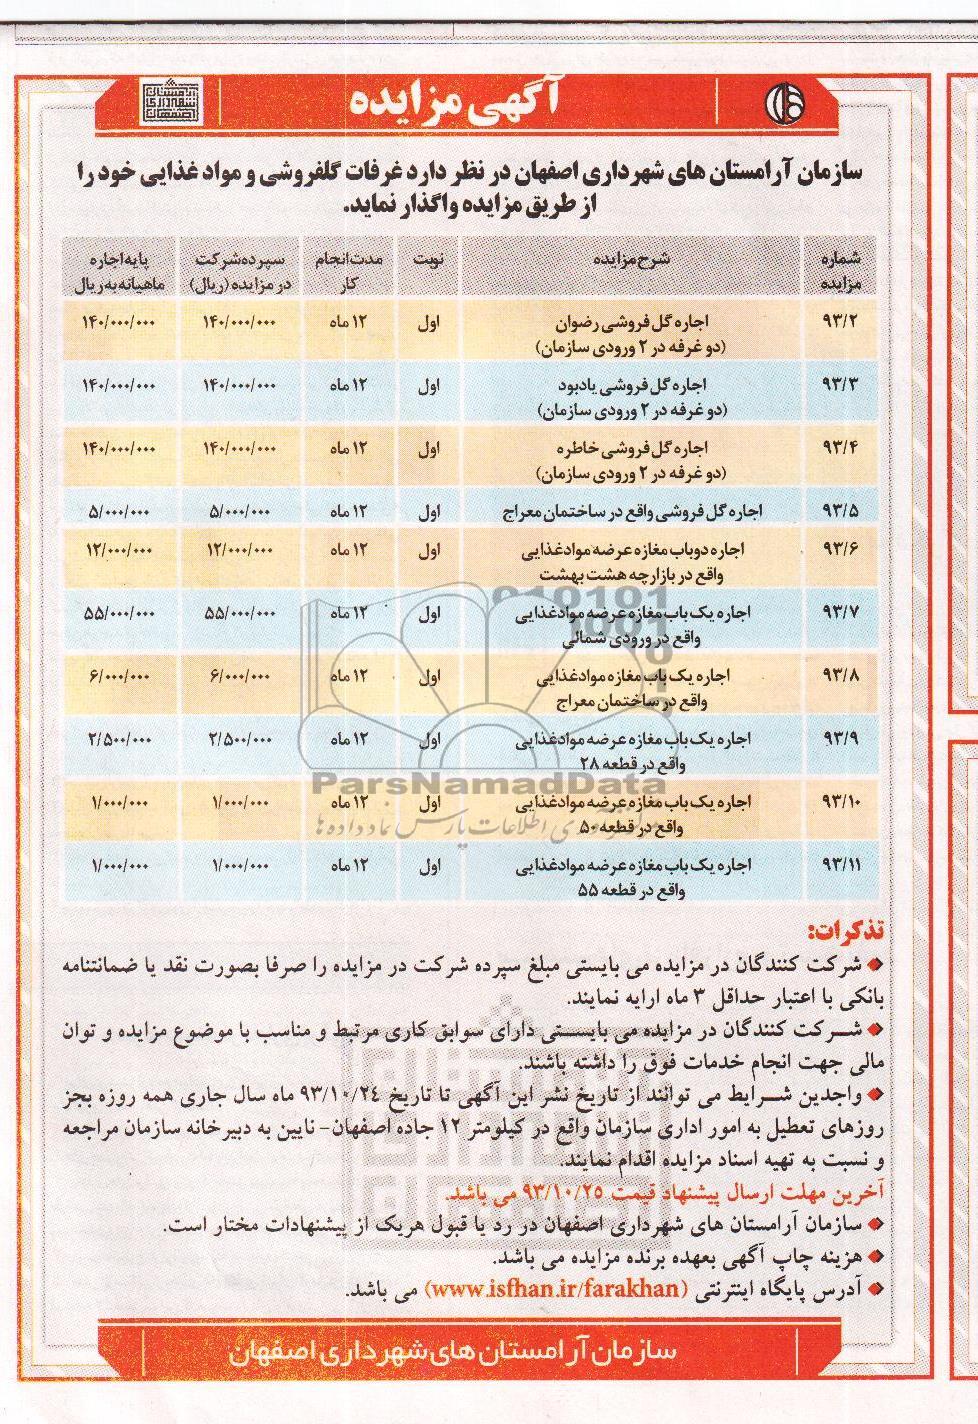 آگهی مزایده
سازمان آرامستان های شهرداری اصفهان در نظر دارد غرفات گلفروشی و مواد غذایی خود را
از طریق مزایده واگذار نماید.
شماره مزایده شرح مزایده نوبت مدت انجام کار سپرده شرکت در مزایده (ریال) پایه اجاره ماهیانه به ریال
۹۳/۲ اجاره گل فروشی رضوان اول ۱۲ ماه ۱۴۰/۰۰۰/۰۰۰ ۱۴۰/۰۰۰/۰۰۰
(دو غرفه در ۲ ورودی سازمان)
۹۳/۳ اجاره گل فروشی یادبود اول ۱۲ ماه ۱۴۰/۰۰۰/۰۰۰ ۱۴۰/۰۰۰/۰۰۰
(دو غرفه در ۲ ورودی سازمان)
۹۳/۴ اجاره گل فروشی خاطره اول ۱۲ ماه ۱۴۰/۰۰۰/۰۰۰ ۱۴۰/۰۰۰/۰۰۰
(دو غرفه در ۲ ورودی سازمان)
۹۳/۵ اجاره گل فروشی واقع در ساختمان معراج اول ۱۲ ماه ۵/۰۰۰/۰۰۰ ۵/۰۰۰/۰۰۰
۹۳/۶ اجاره دوباب مغازه عرضه موادغذایی اول ۱۲ ماه ۱۲/۰۰۰/۰۰۰ ۱۲/۰۰۰/۰۰۰
واقع در بازارچه هشت بهشت
۹۳/۷ اجاره یک باب مغازه عرضه موادغذایی اول ۱۲ ماه ۵۵/۰۰۰/۰۰۰ ۵۵/۰۰۰/۰۰۰
واقع در ورودی شمالی
۹۳/۸ اجاره یک باب مغازه موادغذایی اول ۱۲ ماه ۶/۰۰۰/۰۰۰ ۶/۰۰۰/۰۰۰
واقع در ساختمان معراج
۹۳/۹ اجاره یک باب مغازه عرضه موادغذایی اول ۱۲ ماه ۲/۵۰۰/۰۰۰ ۲/۵۰۰/۰۰۰
واقع در قطعه ۲۸
۹۳/۱۰ اجاره یک باب مغازه عرضه موادغذایی اول ۱۲ ماه ۱/۰۰۰/۰۰۰ ۱/۰۰۰/۰۰۰
واقع در قطعه ۵۰
۹۳/۱۱ اجاره یک باب مغازه عرضه موادغذایی اول ۱۲ ماه ۱/۰۰۰/۰۰۰ ۱/۰۰۰/۰۰۰
واقع در قطعه ۵۵
ParsNamadData
تذکرات:
شرکت کنندگان در مزایده می بایستی مبلغ سپرده شرکت در مزایده را صرفا بصورت نقد یا ضمانتنامه
بانکی با اعتبار حداقل ۳ ماه ارایه نمایند.
شرکت کنندگان در مزایده می بایستی دارای سوابق کاری مرتبط و مناسب با موضوع مزایده و توان
مالی جهت انجام خدمات فوق را داشته باشند.
واجدین شرایط می توانند از تاریخ نشر این آگهی تا تاریخ ۹۳/۱۰/۲۴ ماه سال جاری همه روزه بجز
روزهای تعطیل به امور اداری سازمان واقع در کیلومتر ۱۲ جاده اصفهان- نایین به دبیرخانه سازمان مراجعه
و نسبت به تهیه اسناد مزایده اقدام نمایند.
آخرین مهلت ارسال پیشنهاد قیمت ۹۳/۱۰/۲۵ می باشد.
سازمان آرامستان های شهرداری اصفهان در رد یا قبول هریک از پیشنهادات مختار است.
هزینه چاپ آگهی بعهده برنده مزایده می باشد.
آدرس پایگاه اینترنتی (www.isfhan.ir/farakhan) می باشد.
سازمان آرامستان های شهرداری اصفهان